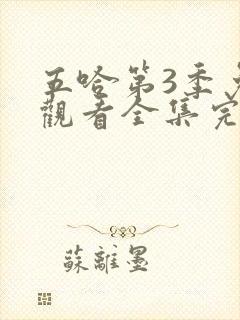 五哈第3季
觀看全集完
蘇離墨